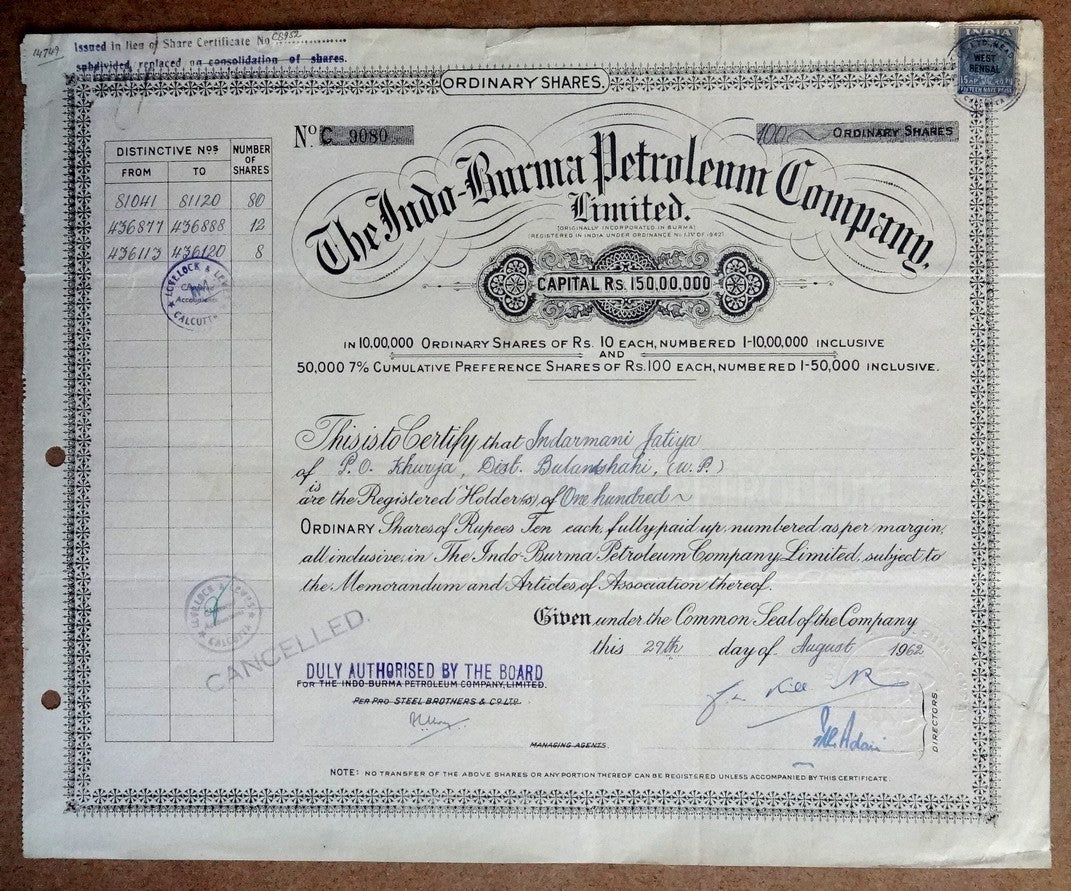 14749
Issued in lieu of Share Certificate No C8952
subdivided, replaced on consolidation of shares.
INDIA
WEST
BENGAL
FIFTEEN NAYE PAISE
ORDINARY SHARES.
No C 9080
100 ORDINARY SHARES
DISTINCTIVE Nos
NUMBER OF SHARES
FROM TO
81041 81120 80
436877 436888 12
436113 436120 8
LOVELOCK & LEWES
Accountants
CALCUTTA
The Indo-Burma Petroleum Company,
Limited.
(ORIGINALLY INCORPORATED IN BURMA)
(REGISTERED IN INDIA UNDER ORDINANCE No LIV OF 1942)
CAPITAL Rs. 150,00,000
IN 10,00,000 ORDINARY SHARES OF Rs. 10 EACH, NUMBERED 1-10,00,000 INCLUSIVE
AND
50,000 7% CUMULATIVE PREFERENCE SHARES OF Rs.100 EACH, NUMBERED 1-50,000 INCLUSIVE.
This is to Certify that Indarmani Jatiya
of P.O. Khurja, Dist. Bulandshahi, (U.P.)
is
are the Registered Holder(s) of One hundred
ORDINARY Shares of Rupees Ten each, fully paid up, numbered as per margin,
all inclusive, in The Indo-Burma Petroleum Company, Limited, subject to
the Memorandum and Articles of Association thereof.
Given under the Common Seal of the Company
this 29th day of August 1962
LOVELOCK & LEWES
CALCUTTA
CANCELLED.
DULY AUTHORISED BY THE BOARD
FOR THE INDO-BURMA PETROLEUM COMPANY, LIMITED.
PER PRO STEEL BROTHERS & CO LTD.
MANAGING AGENTS.
DIRECTORS
NOTE: NO TRANSFER OF THE ABOVE SHARES OR ANY PORTION THEREOF CAN BE REGISTERED UNLESS ACCOMPANIED BY THIS CERTIFICATE.